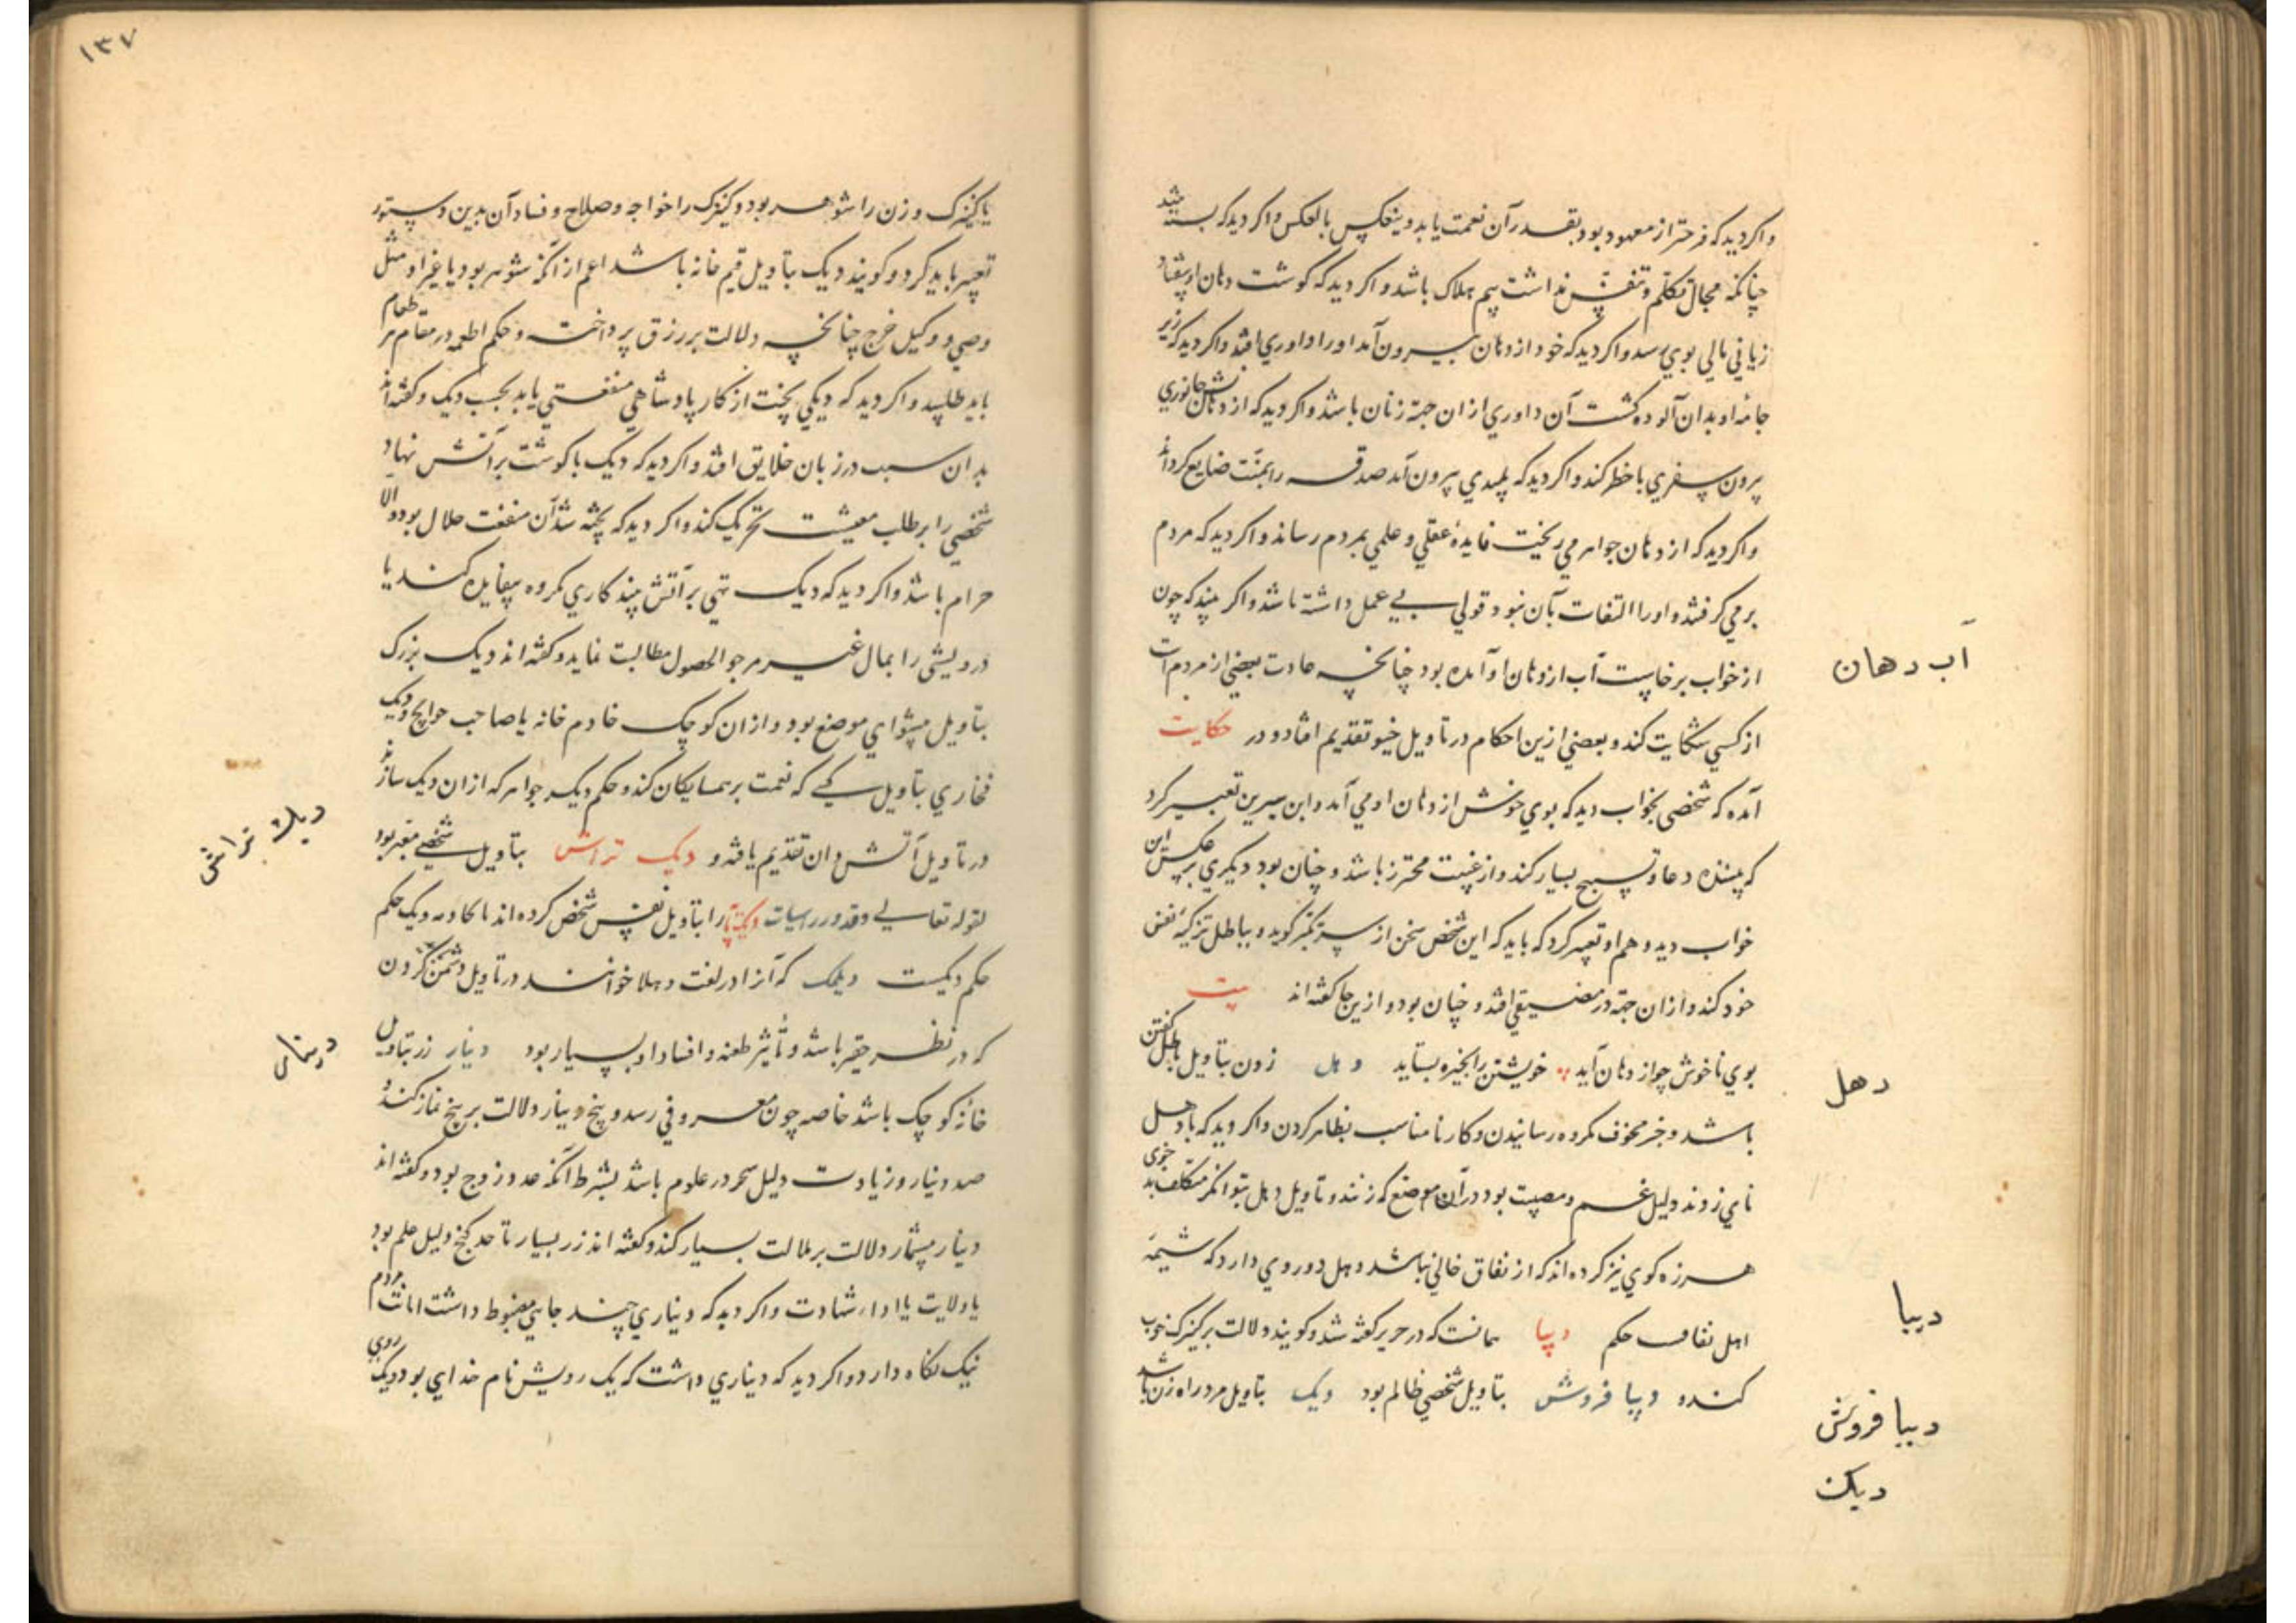 واکر دید که فرختر از معهود بود بقدر آن نعمت یابد و ینعکس بالعکس واکر دید که بسته شد
چنانکه مجال تکلم و تنفس نداشت بیم هلاک باشد واکر دید که کوشت دهان او بیفتاد
زیانی مالی بوی رسد واکر دید که خود از دهان بیرون آمد او را داوری افتد واکر دید که زیر
جامهٔ او بدان آلوده کشت آن داوری از ان جهة زنان باشد واکر دید که از دهانش جانوری
برون سفری با خطر کند واکر دید که پلیدی بیرون آمد صدقه را بمنت ضایع کرداند
واکر دید که از دهان جواهر می ریخت فایدهٔ عقلی و علمی بمردم رساند واکر دید که مردم
بر می کرفتند و او را التفات بآن نبود قولی بی عمل داشته باشد واکر بیند که چون
آب دهان
از خواب برخاست آب از دهان او آمده بود چنانچه عادت بعضی از مردم است
از کسی شکایت کند و بعضی ازین احکام در تاویل خیو تقدیم افتاد و در حکایت
آمده که شخصی بخواب دید که بوی خوش از دهان او می آمد و ابن سیرین تعبیر کرد
که بیننده دعا و تسبیح بسیار کند و از غیبت محترز باشد و چنان بود دیکری بر عکس این
خواب دید و هم او تعبیر کرد که باید که این شخص سخن از سر تکبر کوید و بباطل تزکیهٔ نفس
خود کند و از ان جهة در مضیقی افتد و چنان بود و ازین جا کفته اند بیت
دهل
بوی ناخوش چو از دهان آید خویشتن را بخیره بستاید دهل زدن بتاویل باطل کفتن
باشد و خبر مخوف مکروه رسانیدن و کار نامناسب بظاهر کردن واکر دید که با دهل
نای زدند دلیل غم و مصیبت بود در آن موضع که زنند و تاویل دهل بتوانکر متکلف بد خوی
هرزه کوی نیز کرده اند که از نفاق خالی نباشد دهل دو روی دارد که شیمهٔ
دیبا
اهل نفاق حکم دیبا همانست که در حریر کفته شد و کویند دلالت بر کنیزک خوب
دیبا فروش
کننده دیبا فروش بتاویل شخصی ظالم بود دیک بتاویل مرد راه زن باشد
دیک
۱۳۷
یا کنیزک و زن را شوهر بود و کنیزک را خواجه و صلاح و فساد آن بدین دستور
تعبیر باید کرد و کویند دیک بتاویل قیم خانه باشد اعم از آنکه شوهر بود یا غیر او مثل
وصی و وکیل خرج چنانچه دلالت بر رزق پرداخت و حکم اطعمه در مقام هر طعام
باید طلبید واکر دید که دیکی پخت از کار پادشاهی منفعتی یابد بحسب دیک و کفته اند
بدان سبب در زبان خلایق افتد واکر دید که دیک با کوشت بر آتش نهاد
شخصی را بر طلب معیشت تحریک کند واکر دید که پخته شد آن منفعت حلال بود والا
حرام باشد واکر دید که دیک تهی بر آتش بیند کاری مکروه بیفایده کند یا
درویشی را بمال غیر مرجو الحصول مطالبت نماید و کفته اند دیک بزرک
بتاویل پیشوای موضع بود و از ان کوچک خادم خانه یا صاحب حوایج و دیک
فخاری بتاویل کسی که نعمت بر همسایکان کند و حکم دیک جواهر که از ان دیک سازند
دیک تراش
در تاویل آتش دان تقدیم یافته و دیک تراش بتاویل شخصی معتبر بود
لقوله تعالی وقدور راسیات را بتاویل نفس شخص کرده اند
حکم دیکست دیلمک که آنرا در لغت خوانند در تاویل دشمن
دینار
که در نظر حقیر باشد و تأثیر طعنه و افساد او بسیار بود دینار زر بتاویل
خانهٔ کوچک باشد خاصه چون معروفی رسد و پنج دینار دلالت بر پنج نماز کند و
صد دینار و زیادت دلیل سحر در علوم باشد بشرط آنکه عدد زوج بود و کفته اند
دینار بیشمار دلالت بر ملالت بسیار کند و کفته اند زر بسیار تا حد کنج دلیل علم بود
یا ولایت یا ادای شهادت واکر دید که دیناری چند جایی مضبوط داشت امانت مردم
نیک نکاه دارد واکر دید که دیناری داشت که یک رویش نام خدای بود و دیک روی